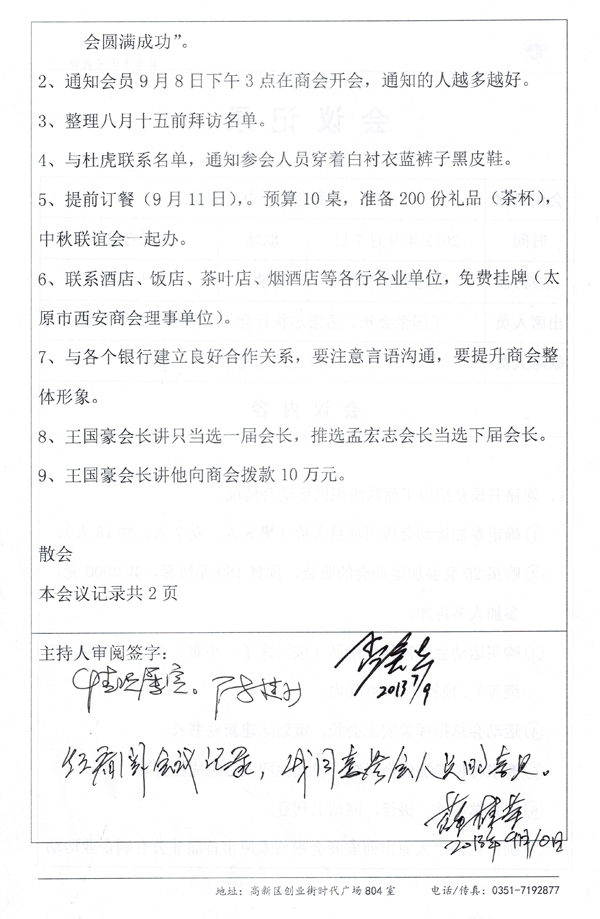 会圆满成功”。
2、通知会员9月8日下午3点在商会开会，通知的人越多越好。
3、整理八月十五前拜访名单。
4、与杜虎联系名单，通知参会人员穿着白衬衣蓝裤子黑皮鞋。
5、提前订餐（9月11日），。预算10桌，准备200份礼品（茶杯），
中秋联谊会一起办。
6、联系酒店、饭店、茶叶店、烟酒店等各行各业单位，免费挂牌（太
原市西安商会理事单位）。
7、与各个银行建立良好合作关系，要注意言语沟通，要提升商会整
体形象。
8、王国豪会长讲只当选一届会长，推选孟宏志会长当选下届会长。
9、王国豪会长讲他向商会拨款10万元。
散会
本会议记录共2页
主持人审阅签字：
2013 7/9
情况属实。
经商阅会议记录，我同意参会人员的意见。
2013年9月10日
地址：高新区创业街时代广场804室 电话/传真：0351-7192877